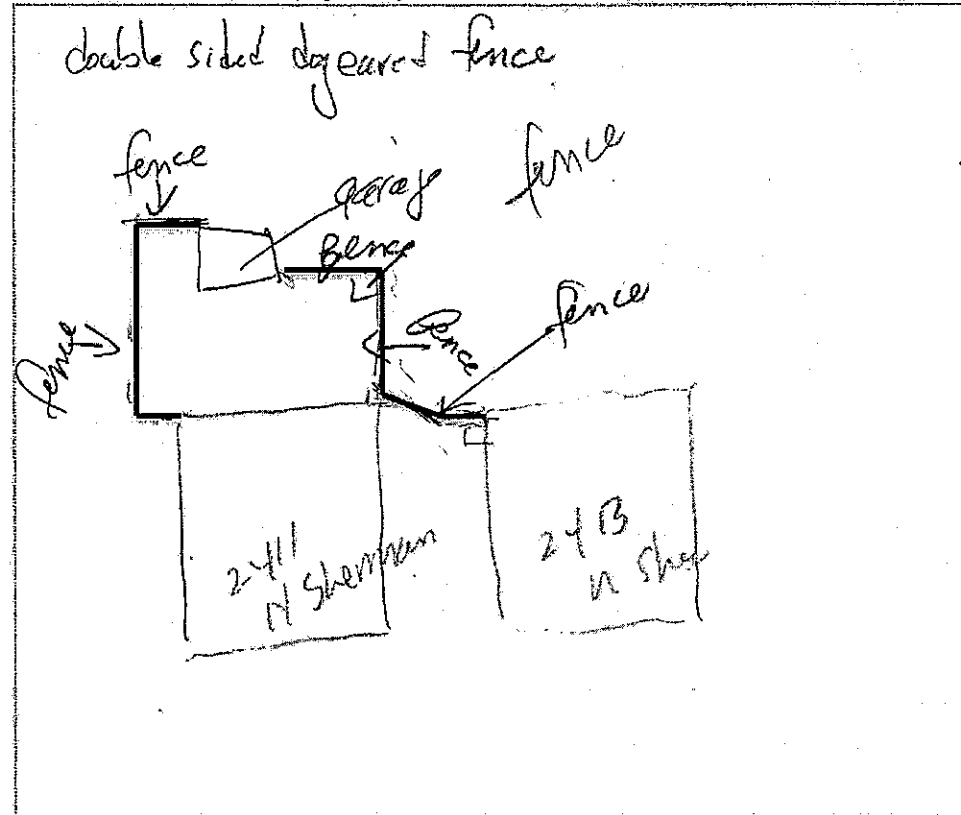 double sided dogeared fence
fence
garage
fence
fence
fence
fence
fence
fence
2411
N Sherman
N Sher